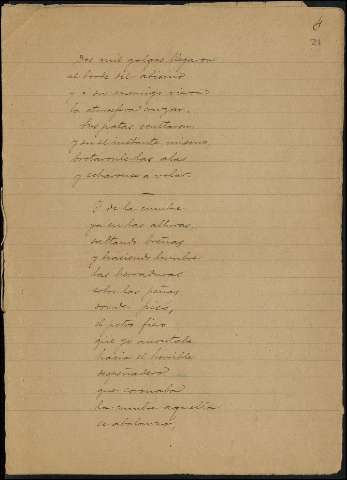 21
Dos mil galgos llegaron
al borde del abismo
y a su enemigo vieron
la atmosfera cruzar.
Sus patas
y en el instante mismo
brotaronles las alas
y echaronse a volar.
Y de la cumbre
ya en las alturas
saltando breñas
y haciendo lumbre
las herraduras
sobre las peñas
donde pisó,
el potro fiero
que yo montaba
hacia el horrible
despeñadero
que coronaba
la cumbre aquella
se abalanzó,